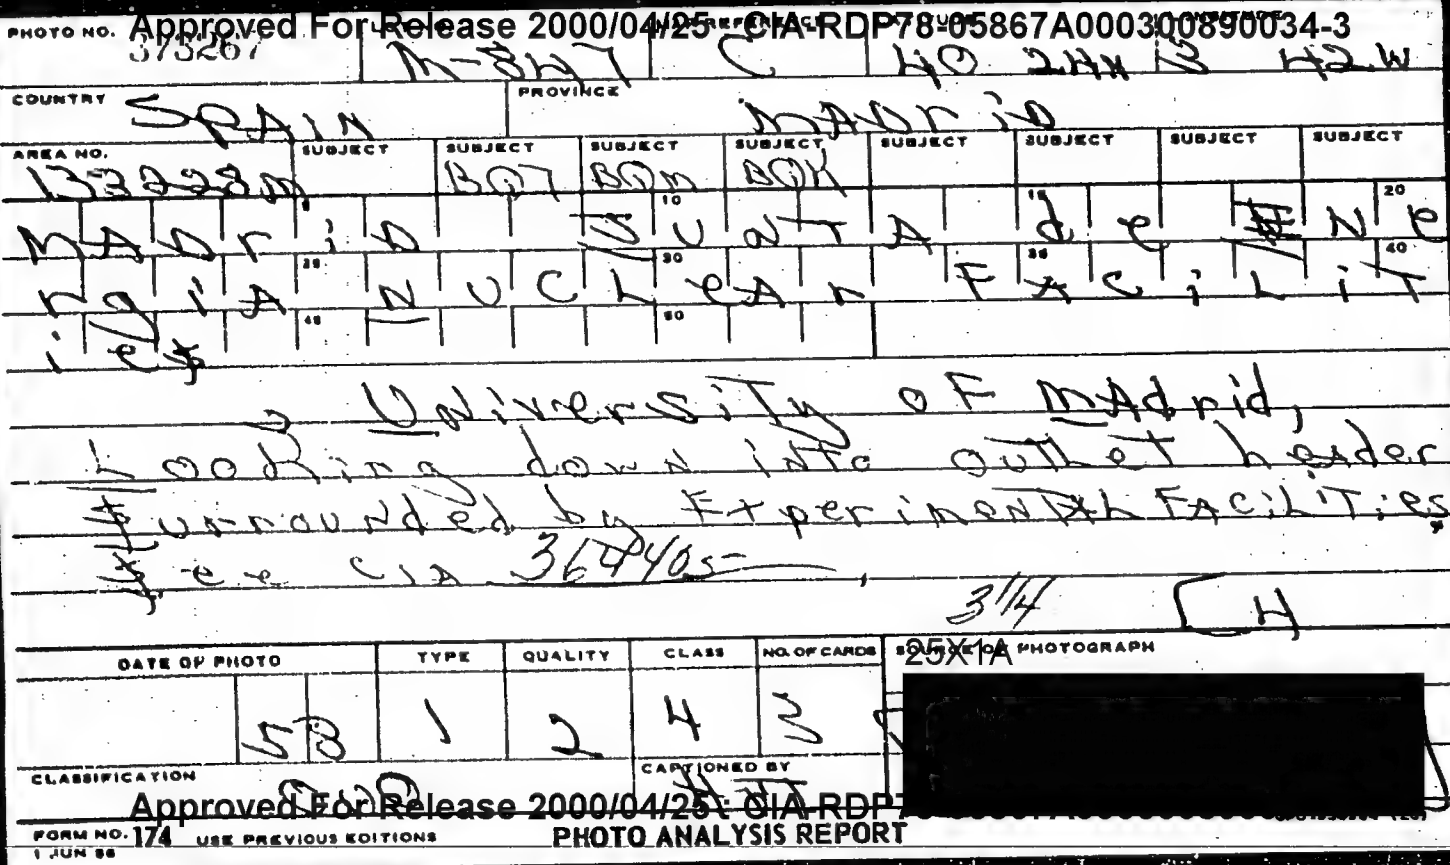 Approved For Release 2000/04/25 : CIA-RDP78-05867A000300890034-3
PHOTO NO.
373267 M-847 C 40 24N 3 42W
COUNTRY SPAIN PROVINCE MADriD
AREA NO. SUBJECT SUBJECT SUBJECT SUBJECT SUBJECT SUBJECT SUBJECT SUBJECT
132228M BQ7 BQM BQK
10 15 20
MADriD JUNTA de ENe
25 30 35 40
rgiA NUCLeAr FACiLiT
45 50
ies
University of MAdrid,
Looking down into outlet header
surrounded by ExperimenTAL FACiLiTies
See CIA 364405
3 1/4 CH
DATE OF PHOTO TYPE QUALITY CLASS NO. OF CARDS SOURCE OF PHOTOGRAPH
25X1A
58 1 2 4 3
CLASSIFICATION CAPTIONED BY
Approved For Release 2000/04/25 : CIA-RDP7
FORM NO. 174 USE PREVIOUS EDITIONS PHOTO ANALYSIS REPORT
1 JUN 56